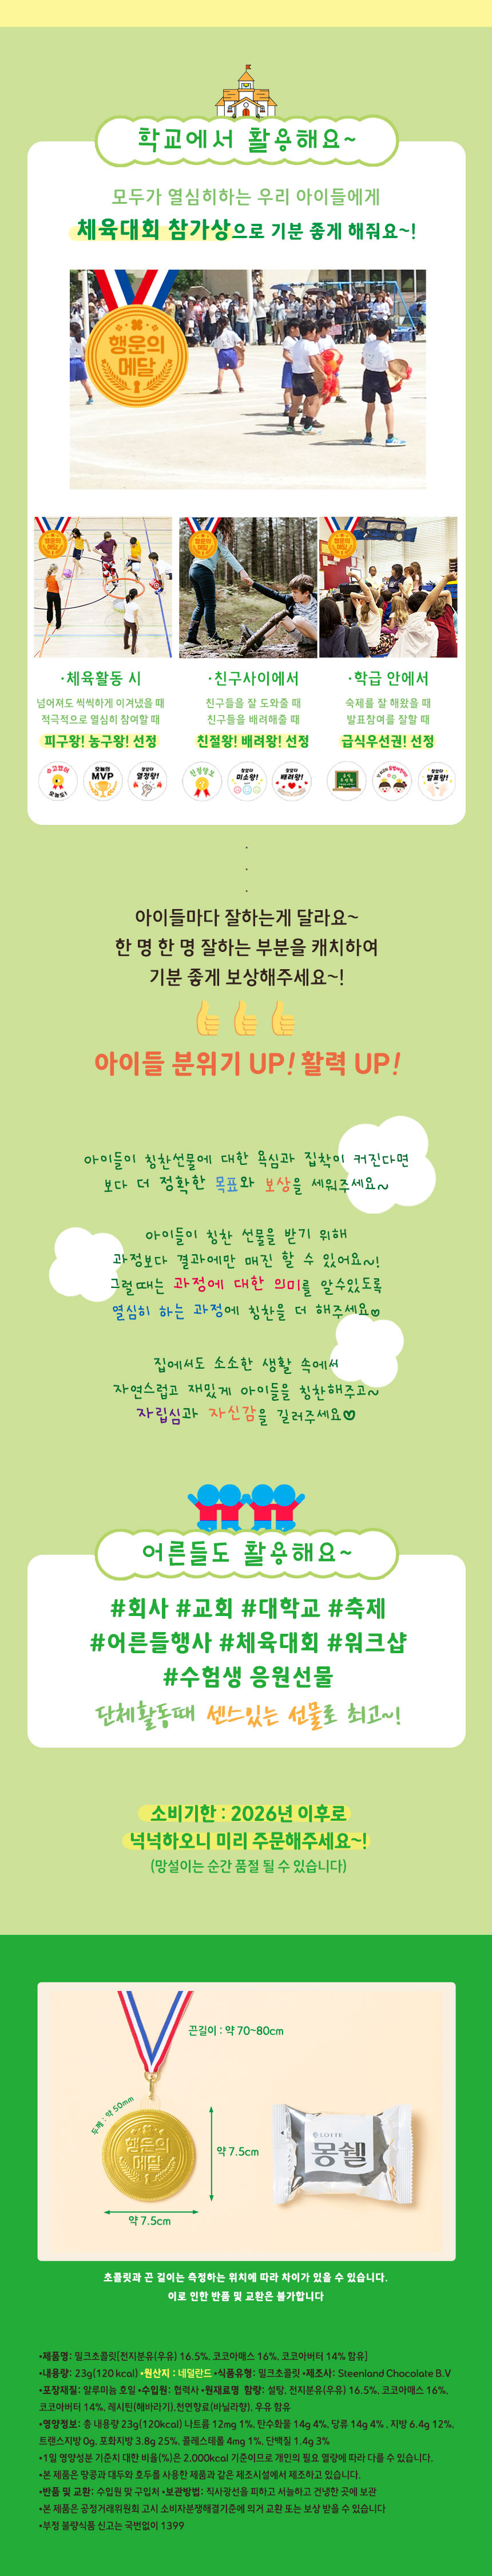 학교에서 활용해요~
모두가 열심히하는 우리 아이들에게
체육대회 참가상으로 기분 좋게 해줘요~!
행운의
메달
행운의
메달
행운의
메달
행운의
메달
·체육활동 시
넘어져도 씩씩하게 이겨냈을 때
적극적으로 열심히 참여할 때
피구왕! 농구왕! 선정
·친구사이에서
친구들을 잘 도와줄 때
친구들을 배려해줄 때
친절왕! 배려왕! 선정
·학급 안에서
숙제를 잘 해왔을 때
발표참여를 잘할 때
급식우선권! 선정
수고했어
오늘도!
오늘의
MVP
잘했다
열정왕!
친절왕보
잘했다
미소왕!
잘했다
배려왕!
급식
우선권
잘했다
발표왕!
.
.
.
아이들마다 잘하는게 달라요~
한 명 한 명 잘하는 부분을 캐치하여
기분 좋게 보상해주세요~!
아이들 분위기 UP! 활력 UP!
아이들이 칭찬선물에 대한 욕심과 집착이 커진다면
보다 더 정확한 목표와 보상을 세워주세요~
아이들이 칭찬 선물을 받기 위해
과정보다 결과에만 매진 할 수 있어요~!
그럴때는 과정에 대한 의미를 알수있도록
열심히 하는 과정에 칭찬을 더 해주세요♡
집에서도 소소한 생활 속에서
자연스럽고 재밌게 아이들을 칭찬해주고~
자립심과 자신감을 길러주세요♡
어른들도 활용해요~
#회사 #교회 #대학교 #축제
#어른들행사 #체육대회 #워크샵
#수험생 응원선물
단체활동때 센스있는 선물로 최고~!
소비기한 : 2026년 이후로
넉넉하오니 미리 주문해주세요~!
(망설이는 순간 품절 될 수 있습니다)
끈길이 : 약 70~80cm
두께 : 약 50mm
행운의
메달
약 7.5cm
약 7.5cm
LOTTE
몽쉘
초콜릿과 끈 길이는 측정하는 위치에 따라 차이가 있을 수 있습니다.
이로 인한 반품 및 교환은 불가합니다
•제품명: 밀크초콜릿[전지분유(우유) 16.5%, 코코아매스 16%, 코코아버터 14% 함유]
•내용량: 23g(120 kcal) •원산지 : 네덜란드 •식품유형: 밀크초콜릿 •제조사: Steenland Chocolate B.V
•포장재질: 알루미늄 호일 •수입원: 협력사 •원재료명 함량: 설탕, 전지분유(우유) 16.5%, 코코아매스 16%,
코코아버터 14%, 레시틴(해바라기),천연향료(바닐라향), 우유 함유
•영양정보: 총 내용량 23g(120kcal) 나트륨 12mg 1%, 탄수화물 14g 4%, 당류 14g 4% , 지방 6.4g 12%,
트랜스지방 0g, 포화지방 3.8g 25%, 콜레스테롤 4mg 1%, 단백질 1.4g 3%
•1일 영양성분 기준치 대한 비율(%)은 2,000kcal 기준이므로 개인의 필요 열량에 따라 다를 수 있습니다.
•본 제품은 땅콩과 대두와 호두를 사용한 제품과 같은 제조시설에서 제조하고 있습니다.
•반품 및 교환: 수입원 맞 구입처 •보관방법: 직사광선을 피하고 서늘하고 건냉한 곳에 보관
•본 제품은 공정거래위원회 고시 소비자분쟁해결기준에 의거 교환 또는 보상 받을 수 있습니다
•부정 불량식품 신고는 국번없이 1399